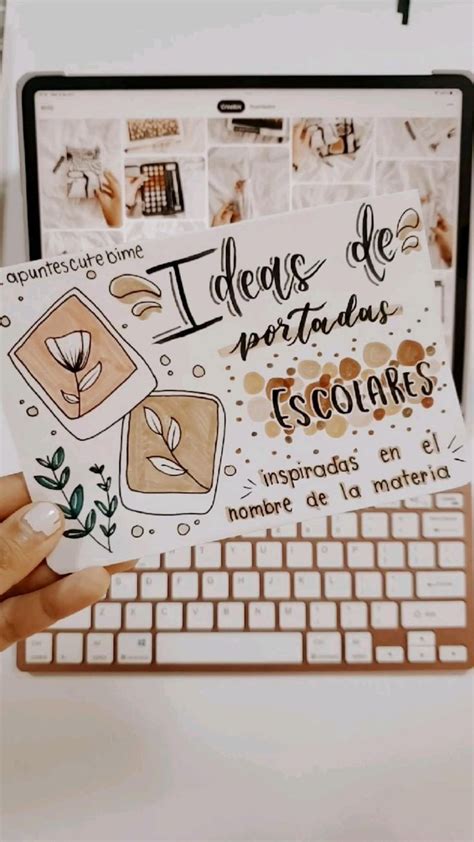 apuntescutebime
Ideas de
portadas
ESCOLARES
inspiradas en el
nombre de la materia